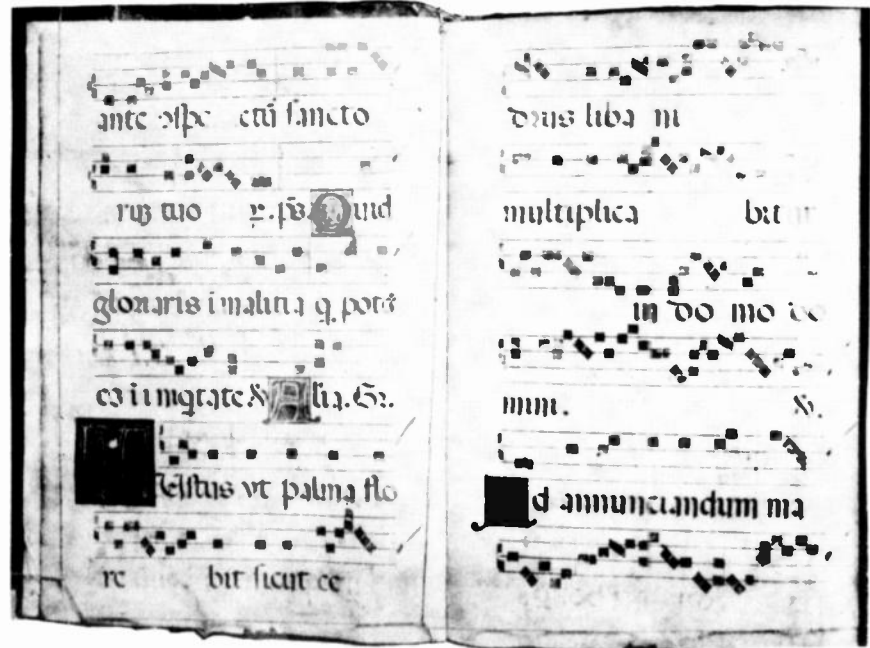 ante ɔspe ctū sancto
rūʒ tuo ꝟ. p̄s. Quid
gloriaris i malitia q̨ potēs
es i iniq̨tate & Alia. Gr.
Iustus vt palma flo
re bit sicut ce
drus liba ni
multiplica bitur
in do mo do
mini. &.
Ad annunciandum ma